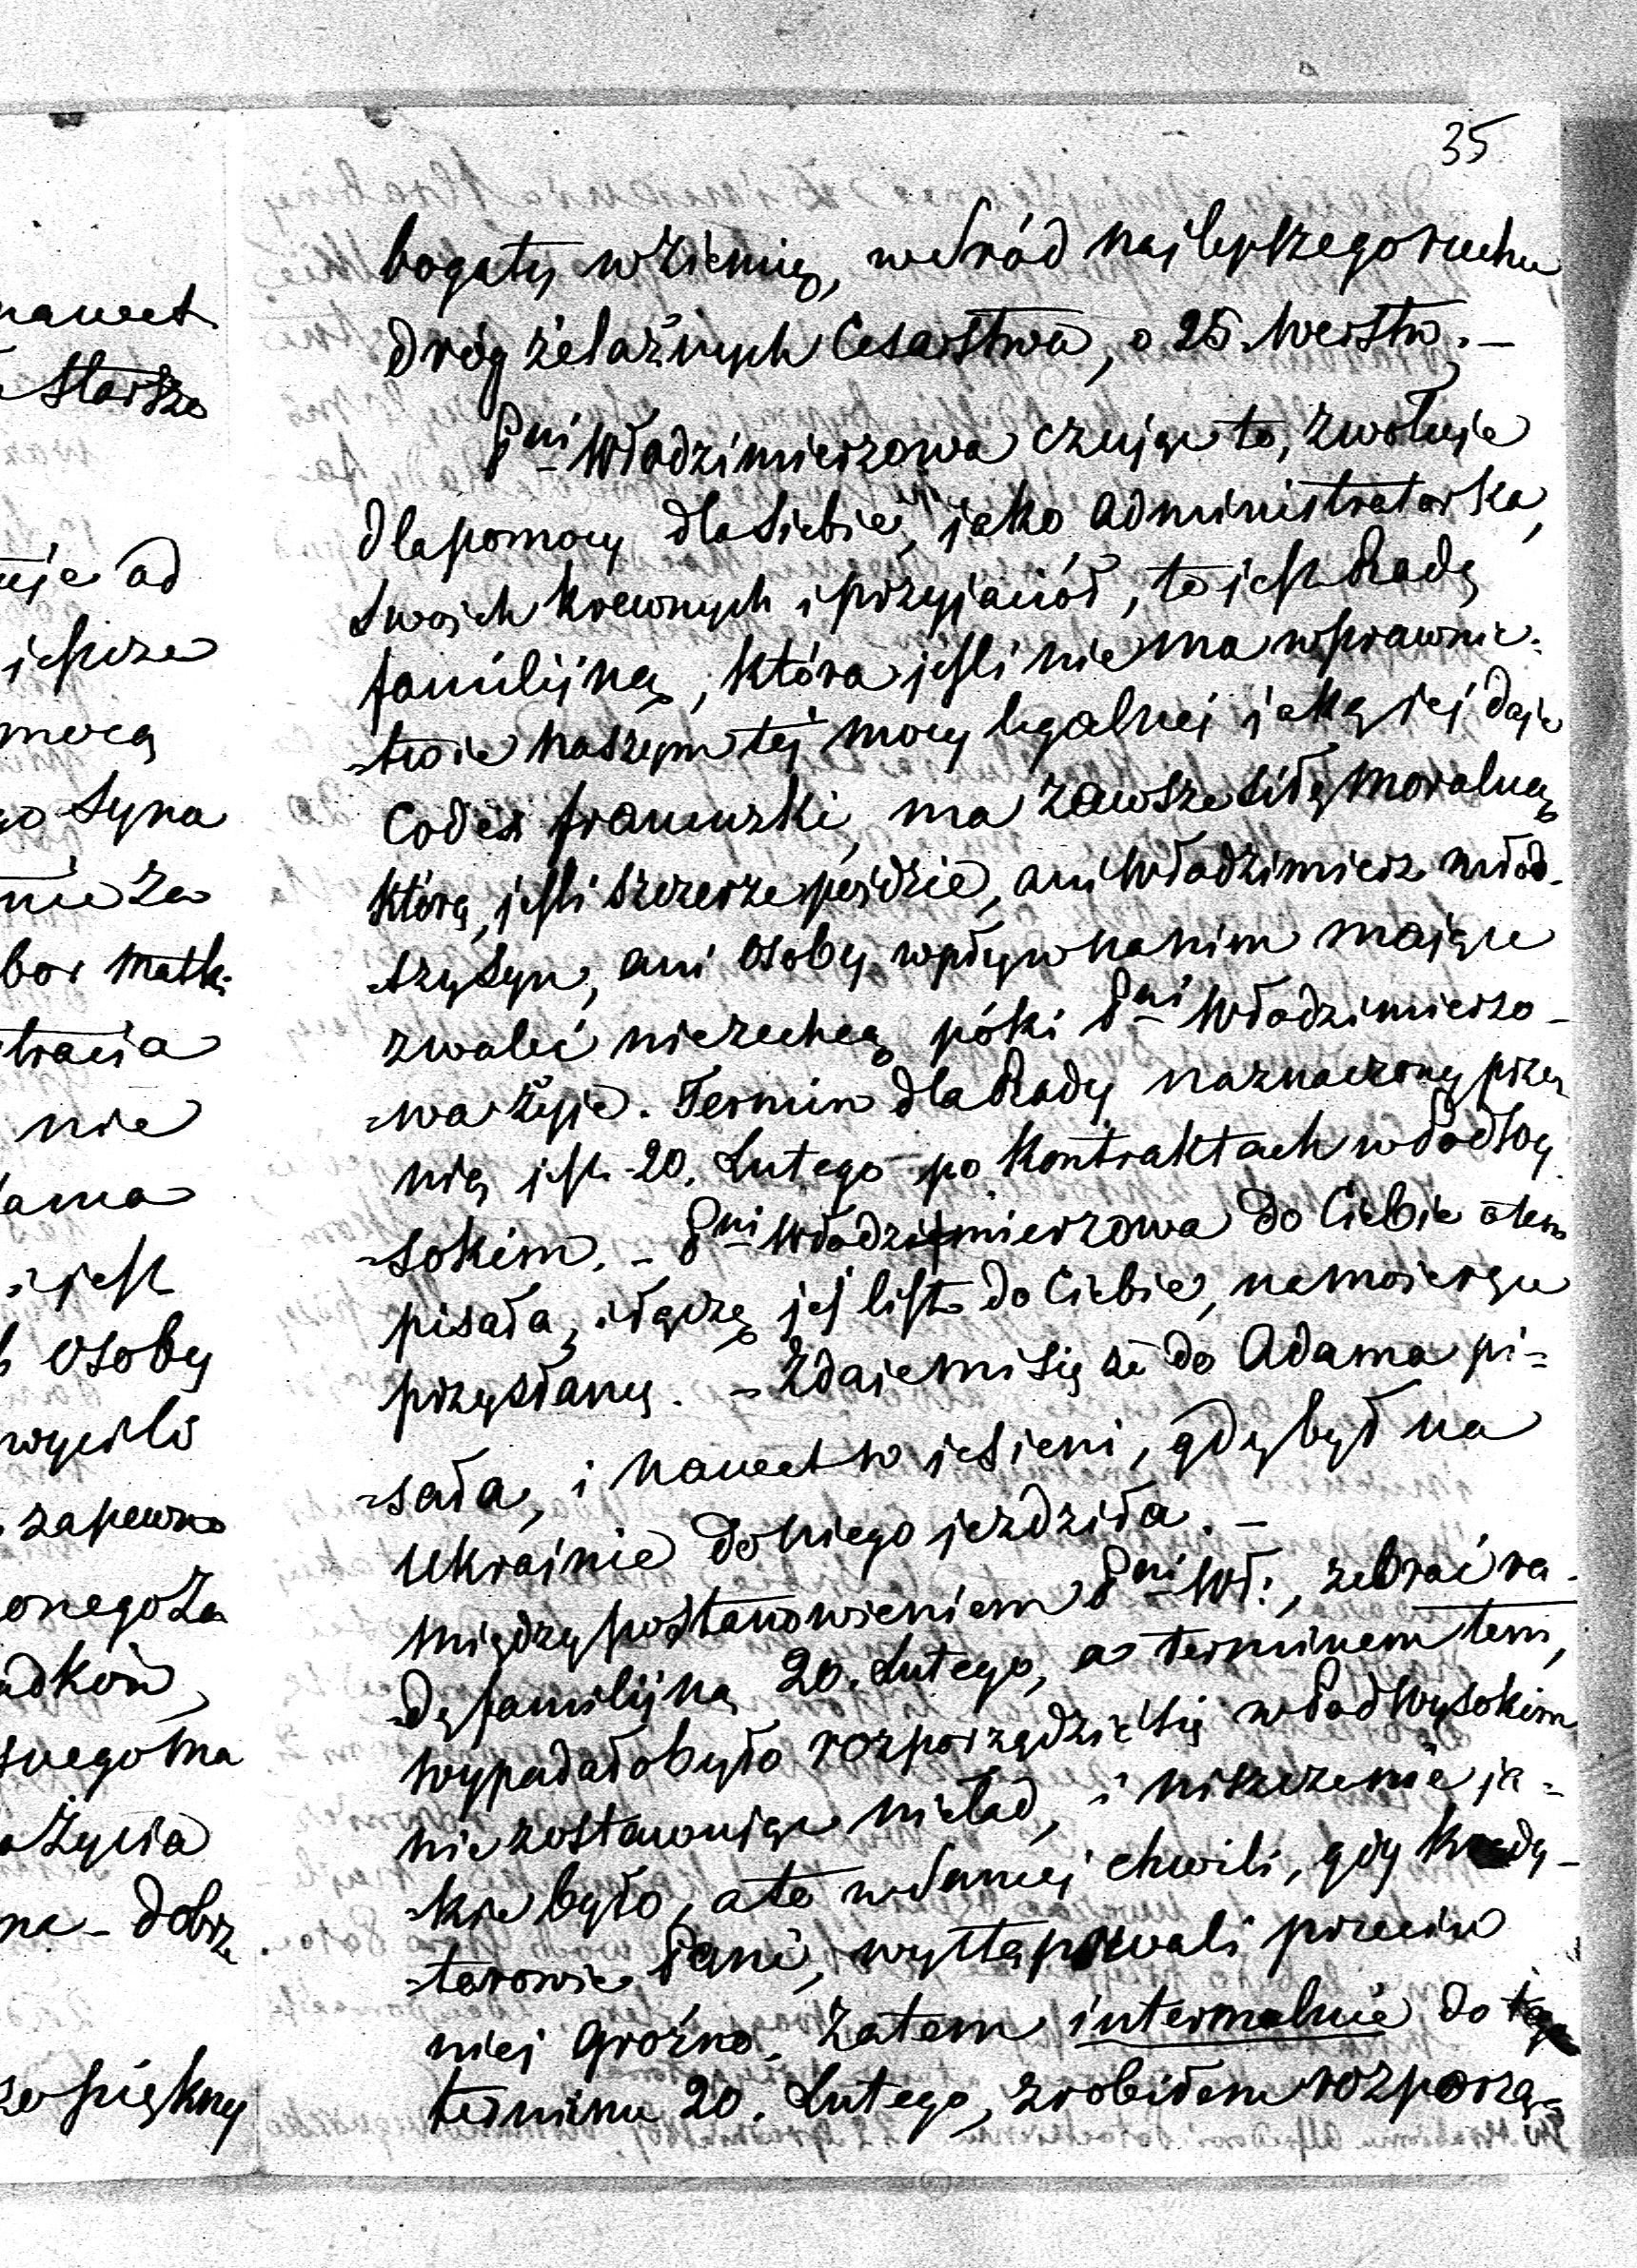 35
bogaty w Ziemię, wśród najlepszego ruchu
dróg żelaznych Cesarstwa, o 25. Werstw. –
Pni Włodzimierzowa czując to, zwołuje
dla pomocy dla siebie, jako administratorka,
swoich krewnych i przyjaciół, to jest Radę
familijną, która jeśli nie ma w prawnic-
-twie naszym tej mocy legalnej jaką jej daje
Codex francuzki, ma zawsze siłę moralną,
którą, jeśli szczerze pójdzie, ani Włodzimierz młod-
-szy syn, ani osoby wpływ na nim mające
zwalić niezechcą póki Pni Włodzimierzo-
-wa żyje. Termin dla Rady naznaczony przez
nią jest 20. Lutego po Kontraktach w Podwy
-sokim. – Pni Włodzimierzowa do Ciebie o tem
pisała, i łączę jej list do Ciebie, na moje ręce
przysłany. – Zdaje mi się że do Adama pi=
-sała, i nawet w jesieni, gdy był na
Ukrainie do niego jezdziła. –
Między postanowieniem Pni Wł:, zebrać ra-
-dę familijną 20. Lutego, a terminem tem,
wypadało było rozporządzić się w Podwysokim
nie zostawując nieład, i niszczenie ja=
-kie było, a to w samej chwili, gdy kredy-
-torowie Pani, występowali przeciw
niej groźno. Zatem intermalnie do tego
terminu 20. Lutego, zrobiłem rozporzą=
nawet
starsze
uje ad
jeszcze
mocą
go syna
nie za
bor matki
tracia
nie
ama
i jest
osoby
wycili
zapewne
onego za
adków,
snego ma
a życia
na – dobrze
piękny